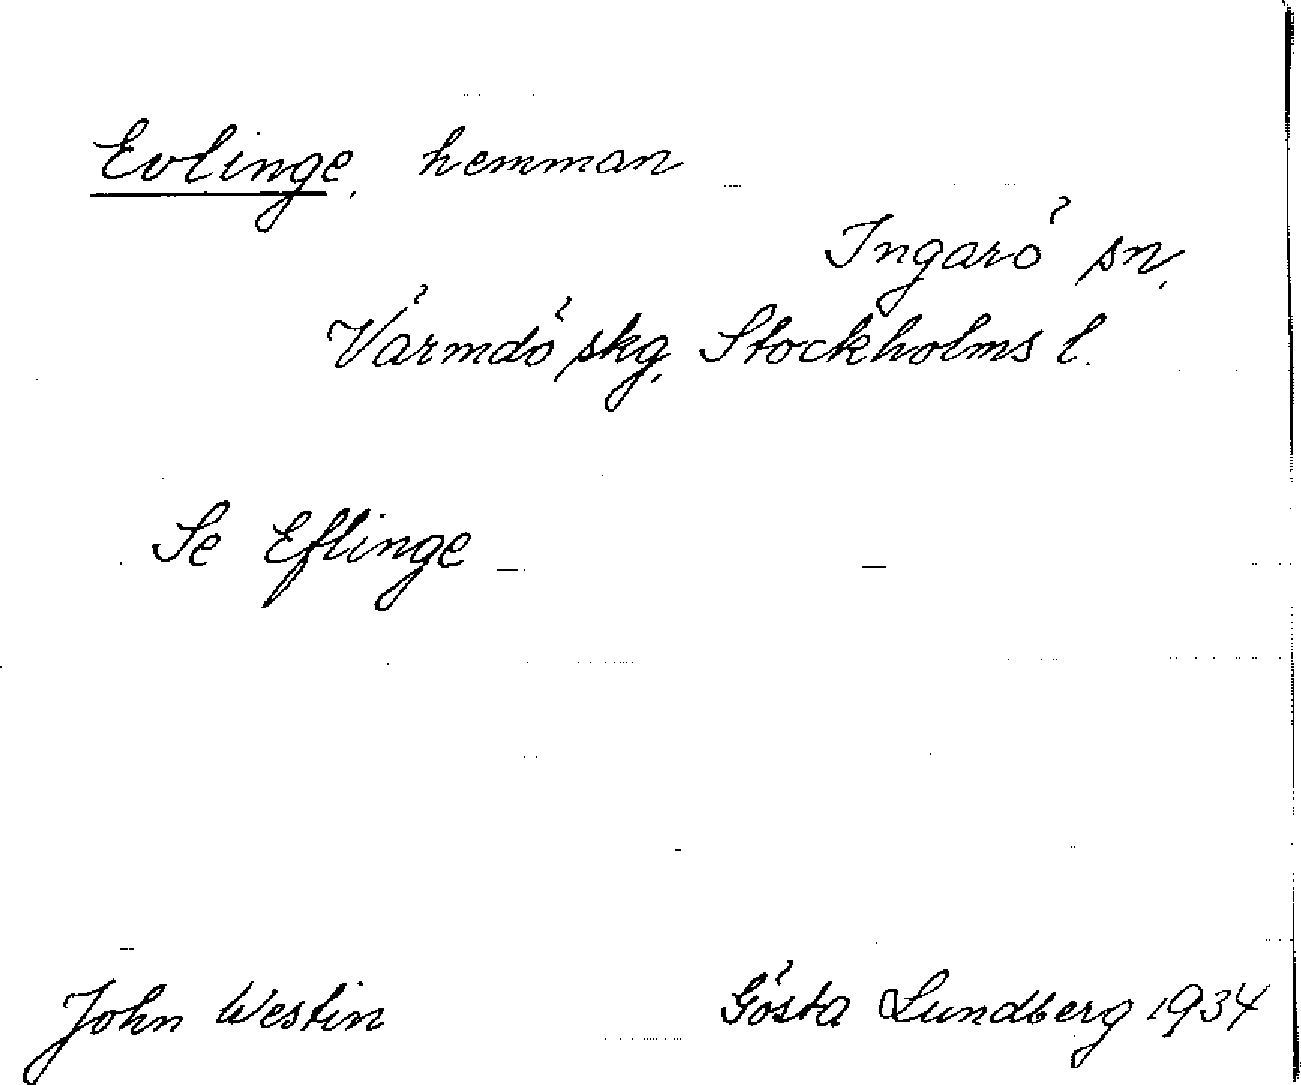 Evlinge, hemman
Ingarö sn,
Värmdö skg, Stockholms l.
Se Eflinge
John Westin Gösta Lundberg 1934